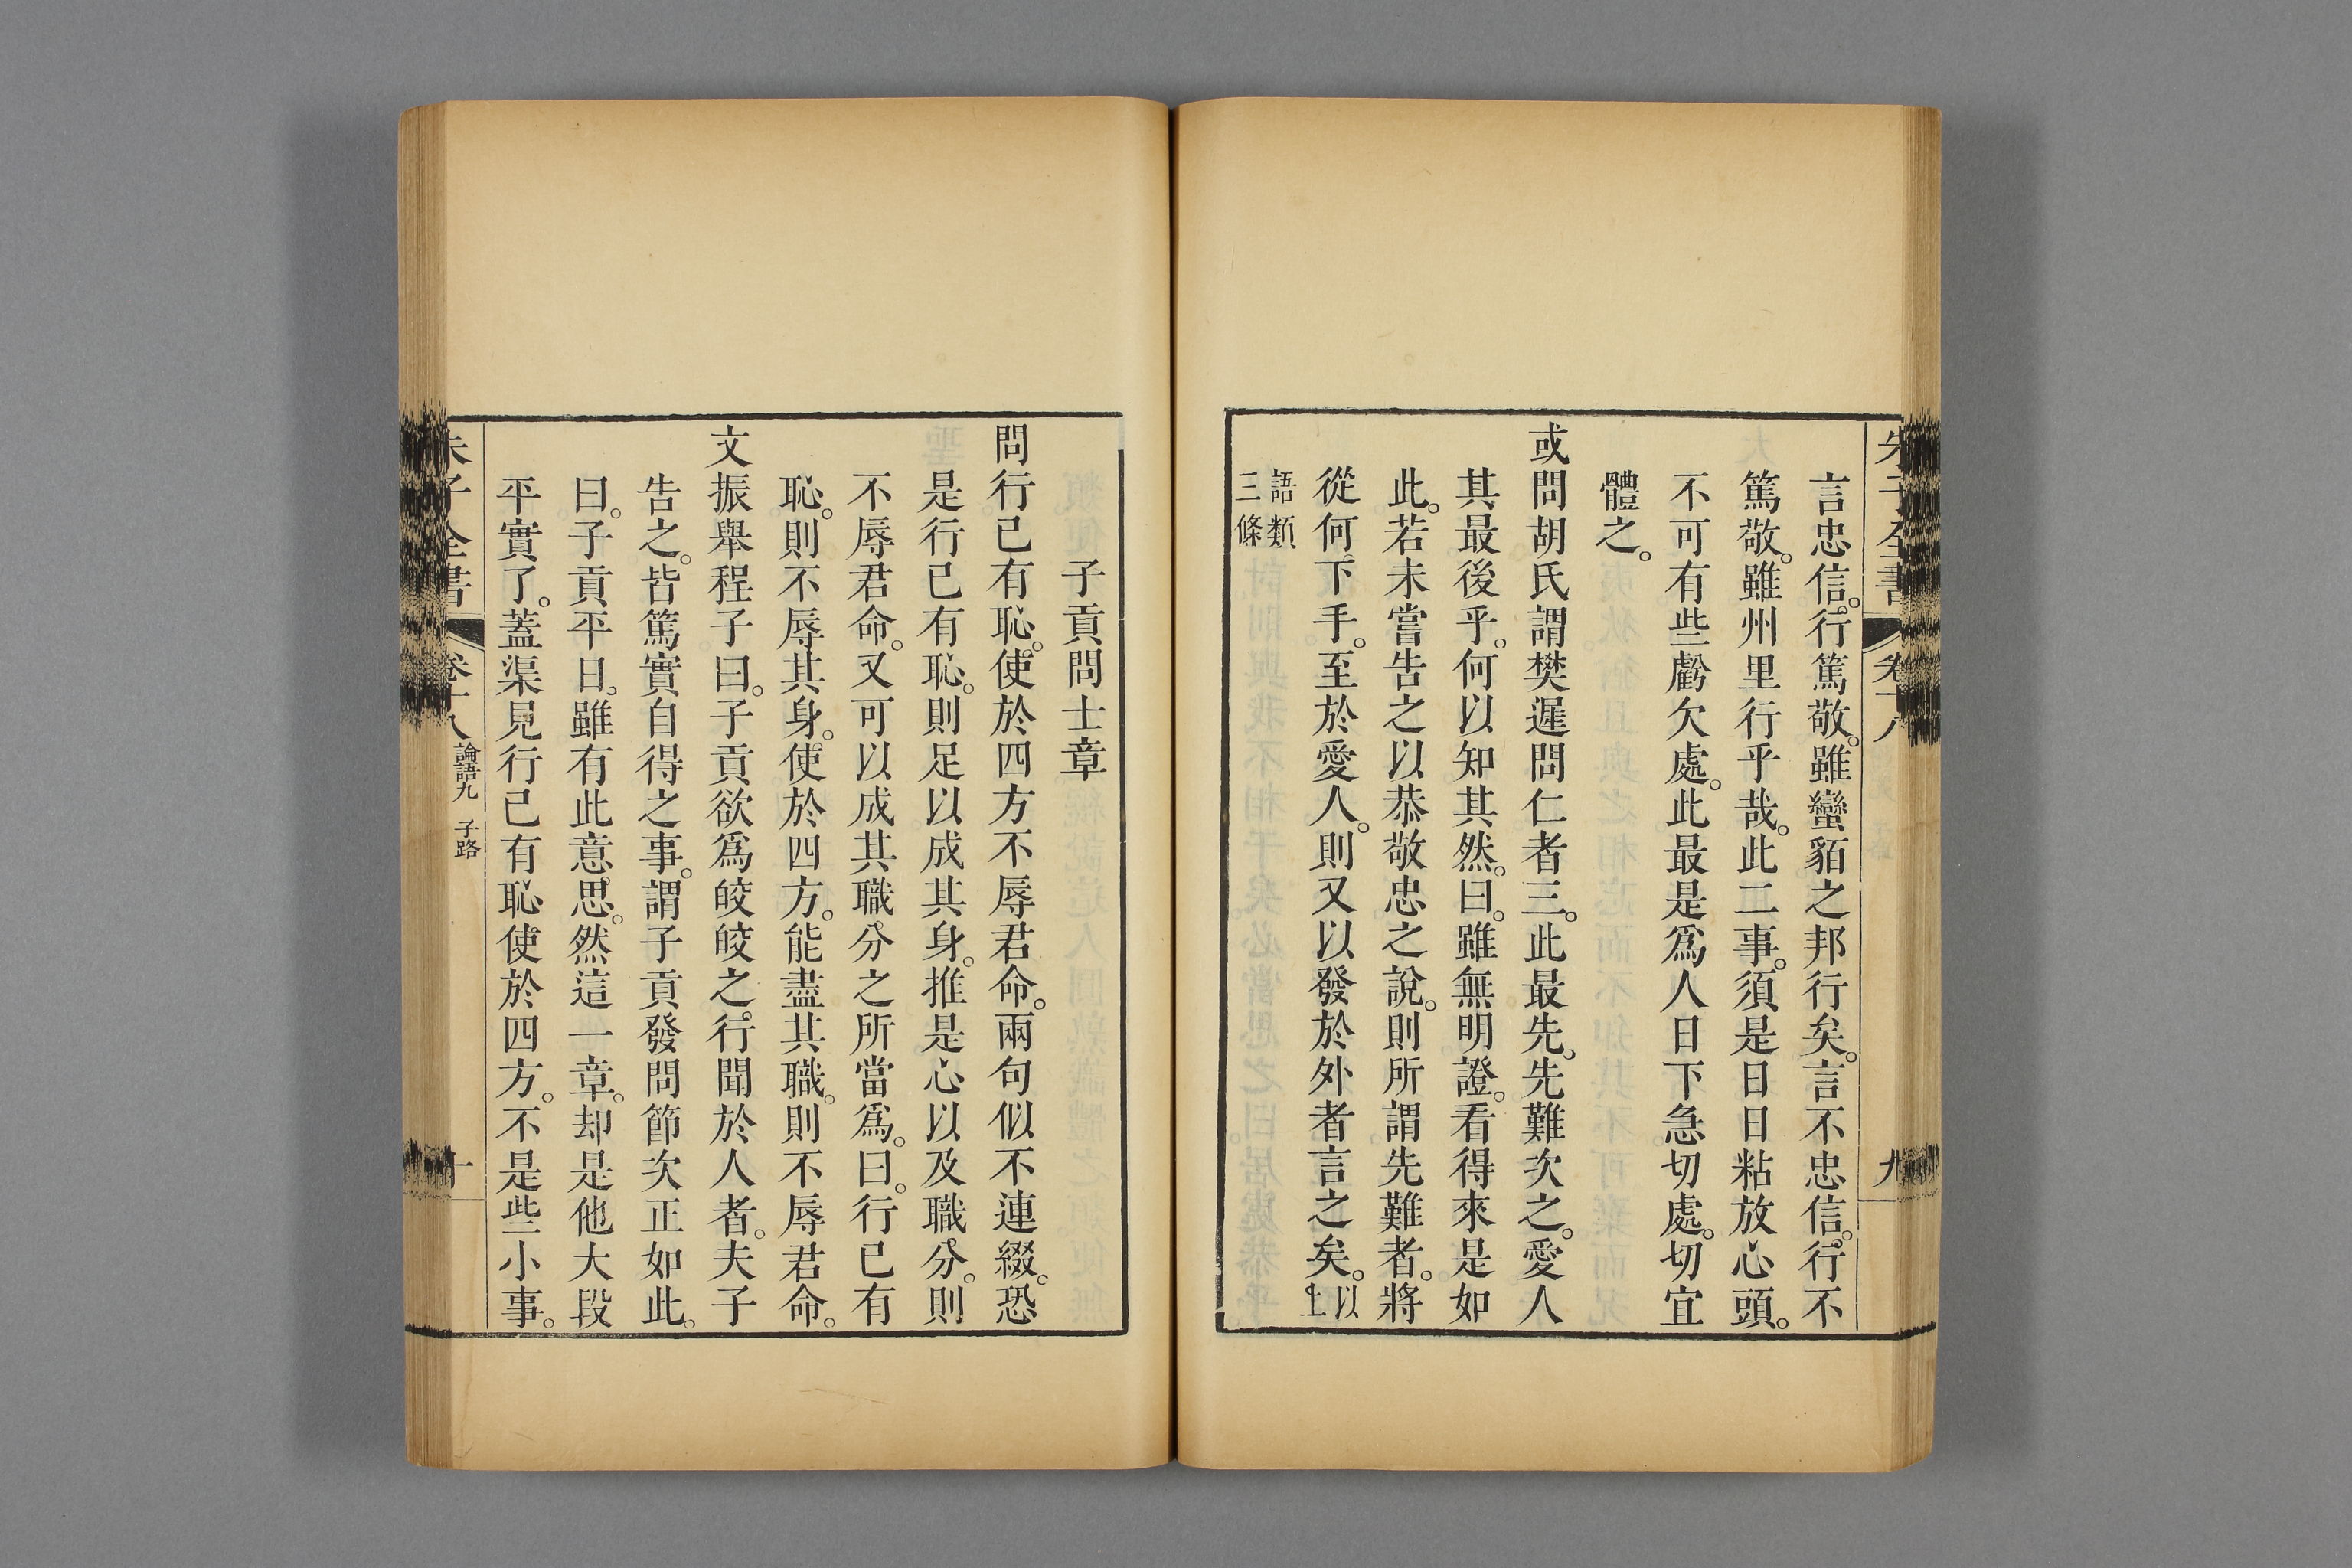 言忠信。行篤敬。雖蠻貊之邦行矣。言不忠信。行不
篤敬。雖州里行乎哉。此二事。須是日日粘放心頭。
不可有些虧欠處。此最是爲人日下急切處。切宜
體之。
或問胡氏謂樊遲問仁者三。此最先。先難次之。愛人
其最後乎。何以知其然。曰。雖無明證。看得來是如
此。若未嘗告之以恭敬忠之說。則所謂先難者。將
從何下手。至於愛人。則又以發於外者言之矣。以上
語類三條
子貢問士章
問行己有恥。使於四方不辱君命。兩句似不連綴。恐
是行己有恥。則足以成其身。推是心以及職分。則
不辱君命。又可以成其職分之所當爲。曰。行己有
恥。則不辱其身。使於四方。能盡其職。則不辱君命。
文振舉程子曰。子貢欲爲皎皎之行聞於人者。夫子
告之。皆篤實自得之事。謂子貢發問節次正如此。
曰。子貢平日。雖有此意思。然這一章。却是他大段
平實了。蓋渠見行己有恥使於四方。不是些小事。
朱子全書 卷十八 論語九 子路 十
朱子全書 卷十八 九